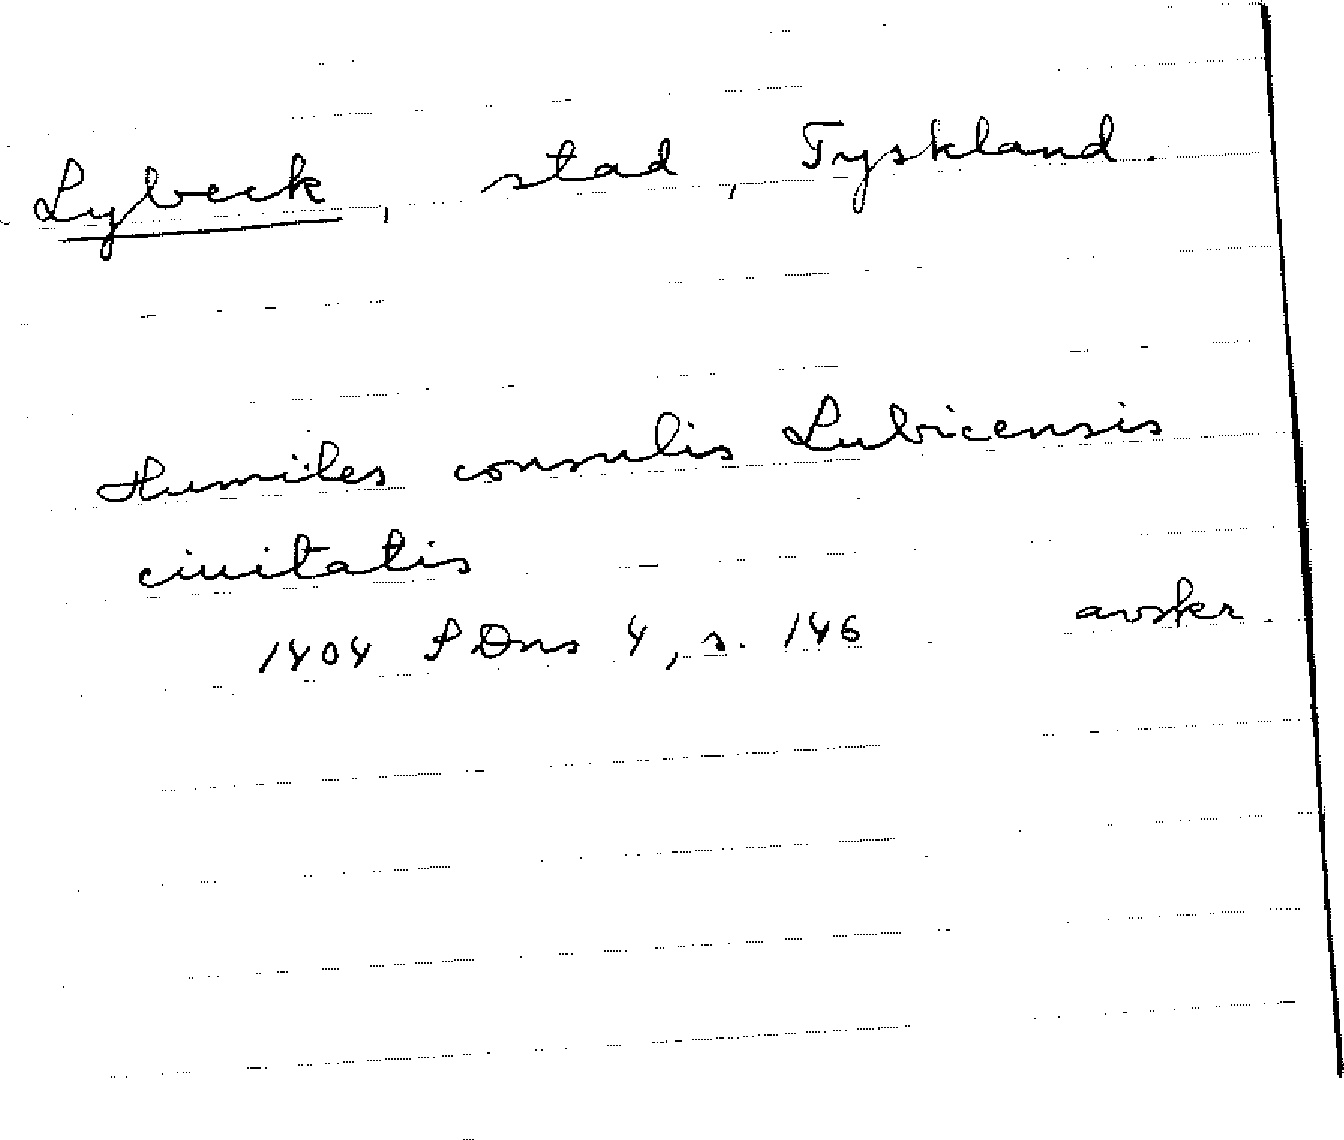 Lybeck, stad, Tyskland.
Humiles consulis Lubicensis
ciuitatis
1404 SDns 4, s. 146 avskr.